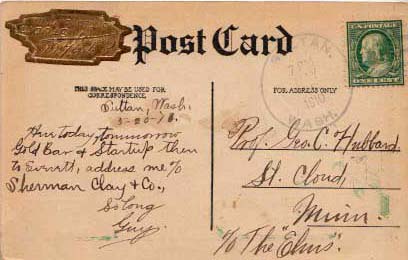 Post Card
THIS SPACE MAY BE USED FOR
CORRESPONDENCE.
FOR ADDRESS ONLY
SULTAN,
1910
WASH.
U.S. POSTAGE
ONE CENT
Sultan, Wash.
3-20-10.
Here today, tomorrow
Gold Bar & Startup then
to Everett, address me c/o
Sherman Clay & Co.,
So Long
Guy.
Prof. Geo. C. Hubbard
St. Cloud,
Minn.
c/o The "Elms".